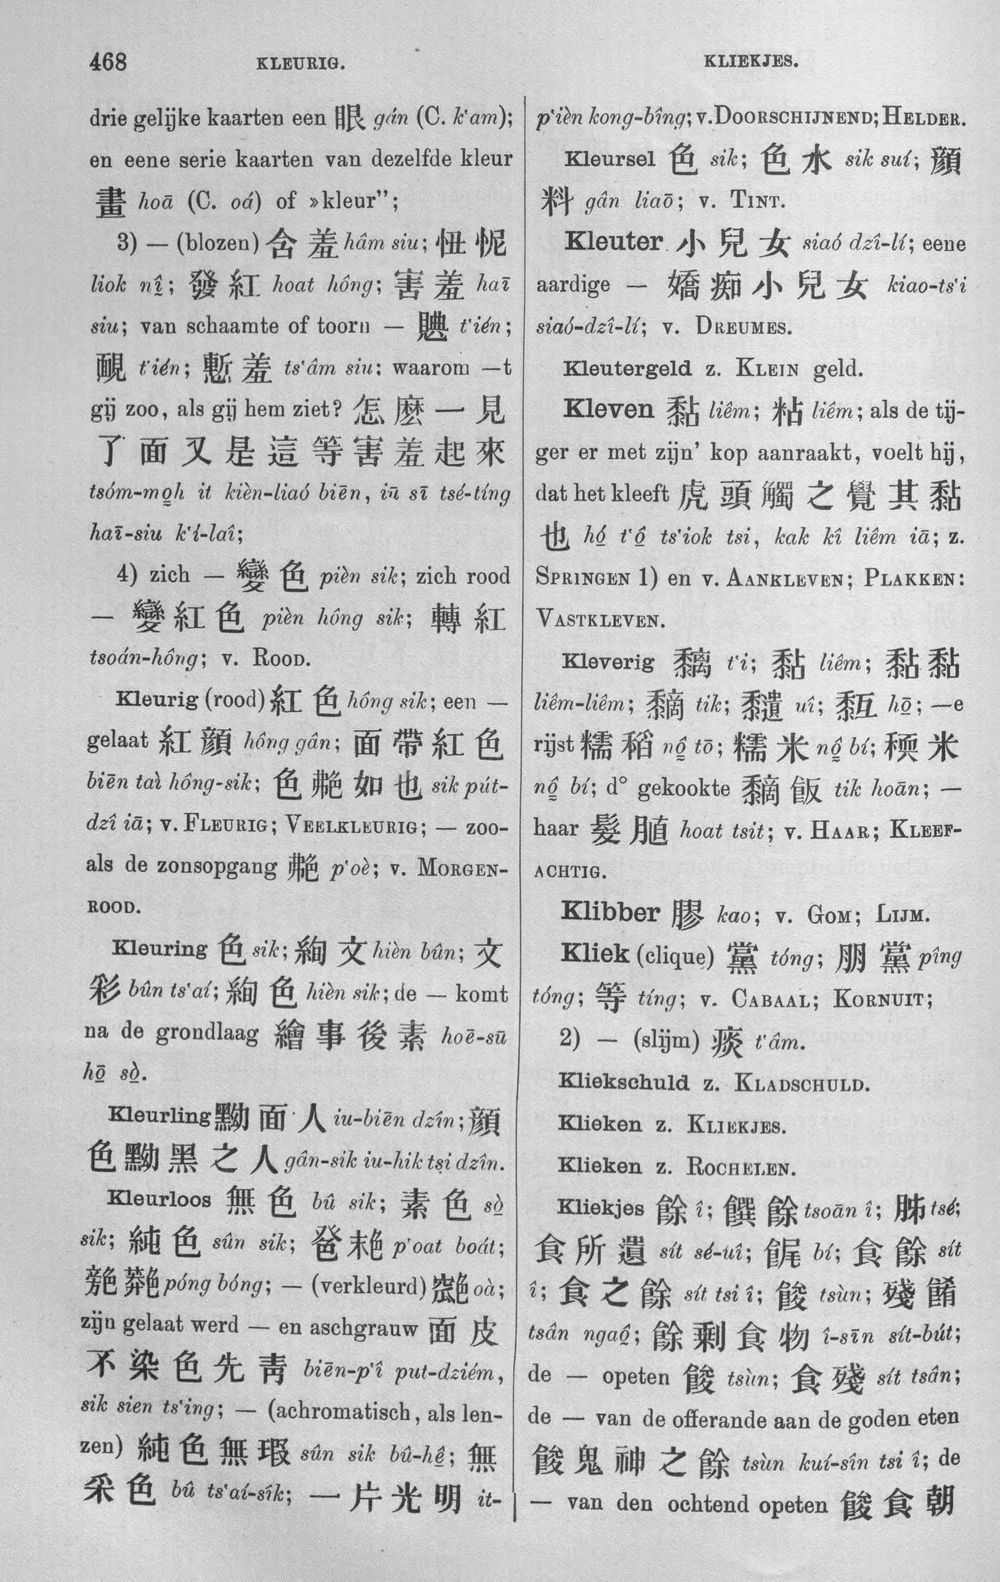 468
KLEURIG.
KLIEKJES.
drie gelijke kaarten een 眼 gán (C. k'am);
en eene serie kaarten van dezelfde kleur
畫 hoā (C. oá) of »kleur";
3) — (blozen) 含羞 hâm siu; 忸怩
liok nî; 發紅 hoat hông; 害羞 haī
siu; van schaamte of toorn — 䩄 t'ién;
靦 t'ién; 慙羞 ts'âm siu; waarom —t
gij zoo, als gij hem ziet? 怎麽一見
了面又是這等害羞起來
tsóm-mo̤h it kièn-liaó biēn, iū sī tsé-tíng
haī-siu k'í-laî;
4) zich — 變色 pièn sik; zich rood
— 變紅色 pièn hông sik; 轉紅
tsoán-hông; v. ROOD.
Kleurig (rood) 紅色 hông sik; een —
gelaat 紅顏 hông gân; 面帶紅色
biēn taì hông-sik; 色艴如也 sik pút-
dzî iā; v. FLEURIG; VEELKLEURIG; — zoo-
als de zonsopgang 艴 p'oè; v. MORGEN-
ROOD.
Kleuring 色 sik; 絢文 hièn bûn; 文
彩 bûn ts'aí; 絢色 hièn sik; de — komt
na de grondlaag 繪事後素 hoē-sū
hō̤ sò̤.
Kleurling 黝面人 iu-biēn dzîn; 顏
色黝黑之人 gân-sik iu-hik tsi dzîn.
Kleurloos 無色 bû sik; 素色 sò̤
sik; 純色 sûn sik; p'oat boát;
póng bóng; — (verkleurd) oà;
zijn gelaat werd — en aschgrauw 面皮
不染色先青 biēn-p'î put-dziém,
sik sien ts'ing; — (achromatisch, als len-
zen) 純色無瑕 sûn sik bû-hê̤; 無
采色 bû ts'aí-sîk; 一片光明 it-
p'ièn kong-bîng; v. DOORSCHIJNEND; HELDER.
Kleursel 色 sik; 色水 sik suí; 顏
料 gân liaō; v. TINT.
Kleuter 小兒女 siaó dzî-lí; eene
aardige — 嬌痴小兒女 kiao-ts'i
siaó-dzî-lí; v. DREUMES.
Kleutergeld z. KLEIN geld.
Kleven 黏 liêm; 粘 liêm; als de tij-
ger er met zijn' kop aanraakt, voelt hij,
dat het kleeft 虎頭觸之覺其黏
也 hó̤ t'ô̤ ts'iok tsi, kak kî liêm iā; z.
SPRINGEN 1) en v. AANKLEVEN; PLAKKEN:
VASTKLEVEN.
Kleverig 黐 t'i; 黏 liêm; 黏黏
liêm-liêm; tik; uî; hō̤; —e
rijst 糯稻 nô̤ tō; 糯米 nô̤ bí; 稬米
nô̤ bí; d° gekookte 飯 tik hoān; —
haar 髮䐈 hoat tsit; v. HAAR; KLEEF-
ACHTIG.
Klibber 膠 kao; v. GOM; LIJM.
Kliek (clique) 黨 tóng; 朋黨 pîng
tóng; 等 tíng; v. CABAAL; KORNUIT;
2) — (slijm) 痰 t'âm.
Kliekschuld z. KLADSCHULD.
Klieken z. KLIEKJES.
Klieken z. ROCHELEN.
Kliekjes 餘 î; 饌餘 tsoān î; 胏 tsé;
食所遺 sít sé-uî; bí; 食餘 sít
î; 食之餘 sít tsi î; 餕 tsùn; 殘餚
tsân ngaô̤; 餘剩食物 î-sīn sít-bút;
de — opeten 餕 tsùn; 食殘 sít tsân;
de — van de offerande aan de goden eten
餕鬼神之餘 tsùn kuí-sîn tsi î; de
— van den ochtend opeten 餕食朝